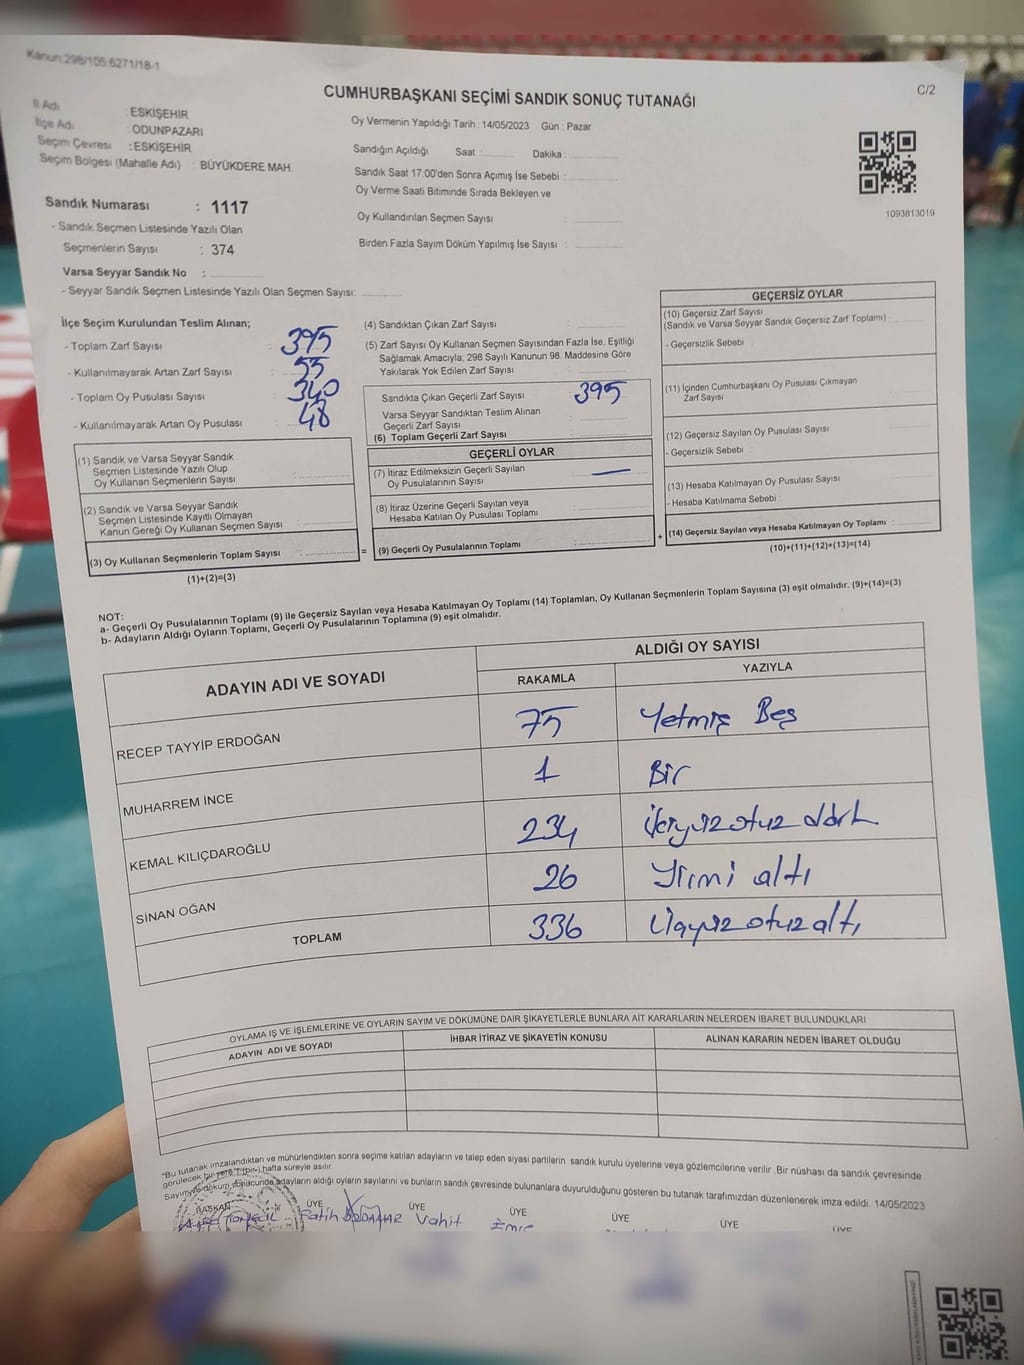 Kanun:298/105;6271/18-1
C/2
CUMHURBAŞKANI SEÇİMİ SANDIK SONUÇ TUTANAĞI
İl Adı : ESKİŞEHİR
İlçe Adı : ODUNPAZARI
Seçim Çevresi : ESKİŞEHİR
Seçim Bölgesi (Mahalle Adı) : BÜYÜKDERE MAH.
Sandık Numarası : 1117
- Sandık Seçmen Listesinde Yazılı Olan
Seçmenlerin Sayısı : 374
Varsa Seyyar Sandık No :
- Seyyar Sandık Seçmen Listesinde Yazılı Olan Seçmen Sayısı:
Oy Vermenin Yapıldığı Tarih : 14/05/2023 Gün : Pazar
Sandığın Açıldığı Saat : Dakika :
Sandık Saat 17:00'den Sonra Açımış İse Sebebi :
Oy Verme Saati Bitiminde Sırada Bekleyen ve
Oy Kullandırılan Seçmen Sayısı :
Birden Fazla Sayım Döküm Yapılmış İse Sayısı :
1093813019
İlçe Seçim Kurulundan Teslim Alınan;
- Toplam Zarf Sayısı : 395
- Kullanılmayarak Artan Zarf Sayısı : 55
- Toplam Oy Pusulası Sayısı : 340
- Kullanılmayarak Artan Oy Pusulası : 48
(1) Sandık ve Varsa Seyyar Sandık
Seçmen Listesinde Yazılı Olup
Oy Kullanan Seçmenlerin Sayısı :
(2) Sandık ve Varsa Seyyar Sandık
Seçmen Listesinde Kayıtlı Olmayan
Kanun Gereği Oy Kullanan Seçmen Sayısı :
(3) Oy Kullanan Seçmenlerin Toplam Sayısı :
(1)+(2)=(3)
=
(4) Sandıktan Çıkan Zarf Sayısı :
(5) Zarf Sayısı Oy Kullanan Seçmen Sayısından Fazla İse, Eşitliği
Sağlamak Amacıyla; 298 Sayılı Kanunun 98. Maddesine Göre
Yakılarak Yok Edilen Zarf Sayısı :
Sandıkta Çıkan Geçerli Zarf Sayısı : 395
Varsa Seyyar Sandıktan Teslim Alınan
Geçerli Zarf Sayısı :
(6) Toplam Geçerli Zarf Sayısı :
GEÇERLİ OYLAR
(7) İtiraz Edilmeksizin Geçerli Sayılan
Oy Pusulalarının Sayısı :
(8) İtiraz Üzerine Geçerli Sayılan veya
Hesaba Katılan Oy Pusulası Toplamı :
(9) Geçerli Oy Pusulalarının Toplamı :
+
GEÇERSİZ OYLAR
(10) Geçersiz Zarf Sayısı
(Sandık ve Varsa Seyyar Sandık Geçersiz Zarf Toplamı) :
- Geçersizlik Sebebi :
(11) İçinden Cumhurbaşkanı Oy Pusulası Çıkmayan
Zarf Sayısı :
(12) Geçersiz Sayılan Oy Pusulası Sayısı :
- Geçersizlik Sebebi :
(13) Hesaba Katılmayan Oy Pusulası Sayısı :
- Hesaba Katılmama Sebebi :
(14) Geçersiz Sayılan veya Hesaba Katılmayan Oy Toplamı :
(10)+(11)+(12)+(13)=(14)
NOT:
a- Geçerli Oy Pusulalarının Toplamı (9) ile Geçersiz Sayılan veya Hesaba Katılmayan Oy Toplamı (14) Toplamları, Oy Kullanan Seçmenlerin Toplam Sayısına (3) eşit olmalıdır. (9)+(14)=(3)
b- Adayların Aldığı Oyların Toplamı, Geçerli Oy Pusulalarının Toplamına (9) eşit olmalıdır.
ADAYIN ADI VE SOYADI ALDIĞI OY SAYISI
RAKAMLA YAZIYLA
RECEP TAYYİP ERDOĞAN 75 Yetmiş Beş
MUHARREM İNCE 1 Bir
KEMAL KILIÇDAROĞLU 234 ikiyüz otuz dört
SİNAN OĞAN 26 Yirmi altı
TOPLAM 336 Üçyüz otuz altı
OYLAMA İŞ VE İŞLEMLERİNE VE OYLARIN SAYIM VE DÖKÜMÜNE DAİR ŞİKAYETLERLE BUNLARA AİT KARARLARIN NELERDEN İBARET BULUNDUKLARI
ADAYIN ADI VE SOYADI İHBAR İTİRAZ VE ŞİKAYETİN KONUSU ALINAN KARARIN NEDEN İBARET OLDUĞU
"Bu tutanak imzalandıktan ve mühürlendikten sonra seçime katılan adayların ve talep eden siyasi partilerin sandık kurulu üyelerine veya gözlemcilerine verilir. Bir nüshası da sandık çevresinde
görülecek bir yere 1 (bir) hafta süreyle asılır.
Sayım ve döküm sonucunda adayların aldığı oyların sayılarını ve bunların sandık çevresinde bulunanlara duyurulduğunu gösteren bu tutanak tarafımızdan düzenlenerek imza edildi. 14/05/2023
BAŞKAN ÜYE ÜYE ÜYE ÜYE ÜYE ÜYE
Fatih Vahit Emre